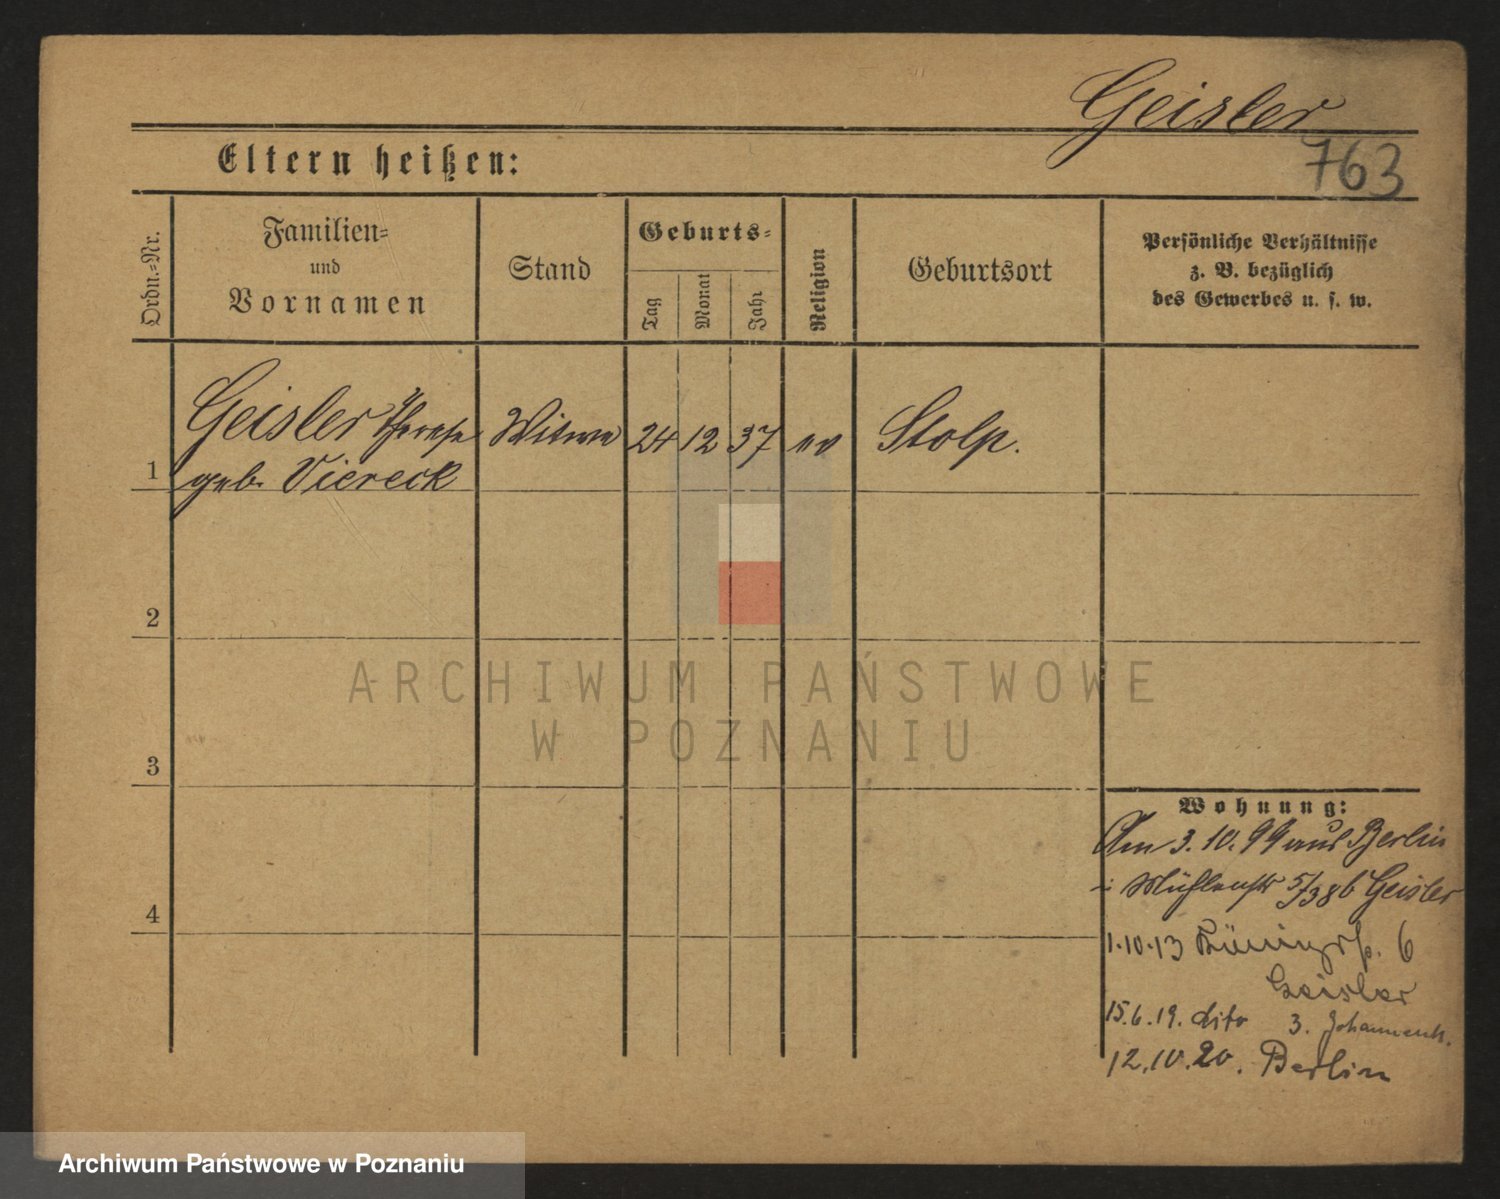 Geisler
763
Eltern heißen:
Ordn.=Nr.
Familien=
und
Vornamen
Stand
Geburts=
Tag
Monat
Jahr
Religion
Geburtsort
Persönliche Verhältnisse
z. B. bezüglich
des Gewerbes u. s. w.
1
Geisler Therese
geb. Viereck
Witwe
24 12 37
ev
Stolp.
2
3
4
Wohnung:
Am 3. 10. 99 aus Berlin
Mühlenstr 5/38 b Geisler
1.10.13 6
Geisler
15.6.19. dito 3.
12.10.20. Berlin
ARCHIWUM PAŃSTWOWE
W POZNANIU
Archiwum Państwowe w Poznaniu